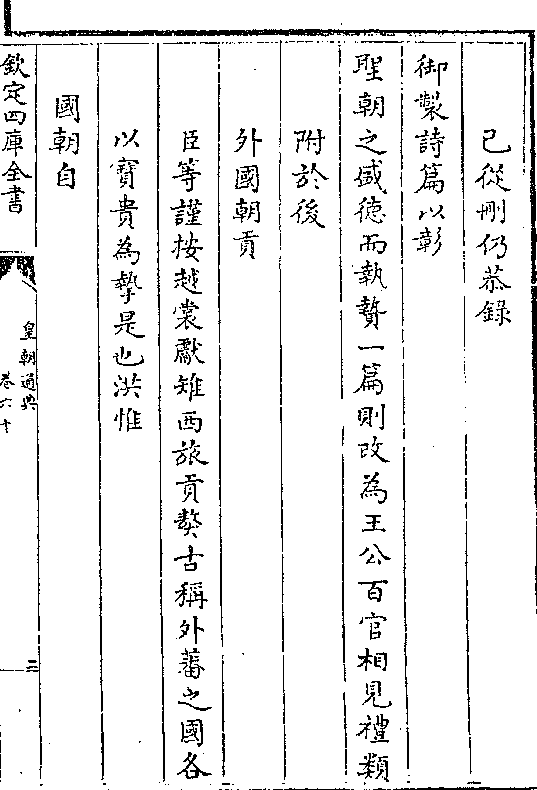 已從刪仍恭錄
御製詩篇以彰
聖朝之盛德而執贄一篇則改為王公百官相見禮類
附於後
外國朝貢
臣等謹按越裳獻雉西旅貢獒古稱外蕃之國各
以寶貴為摯是也洪惟
國朝自
欽定四庫全書
皇朝通典
卷六十
二